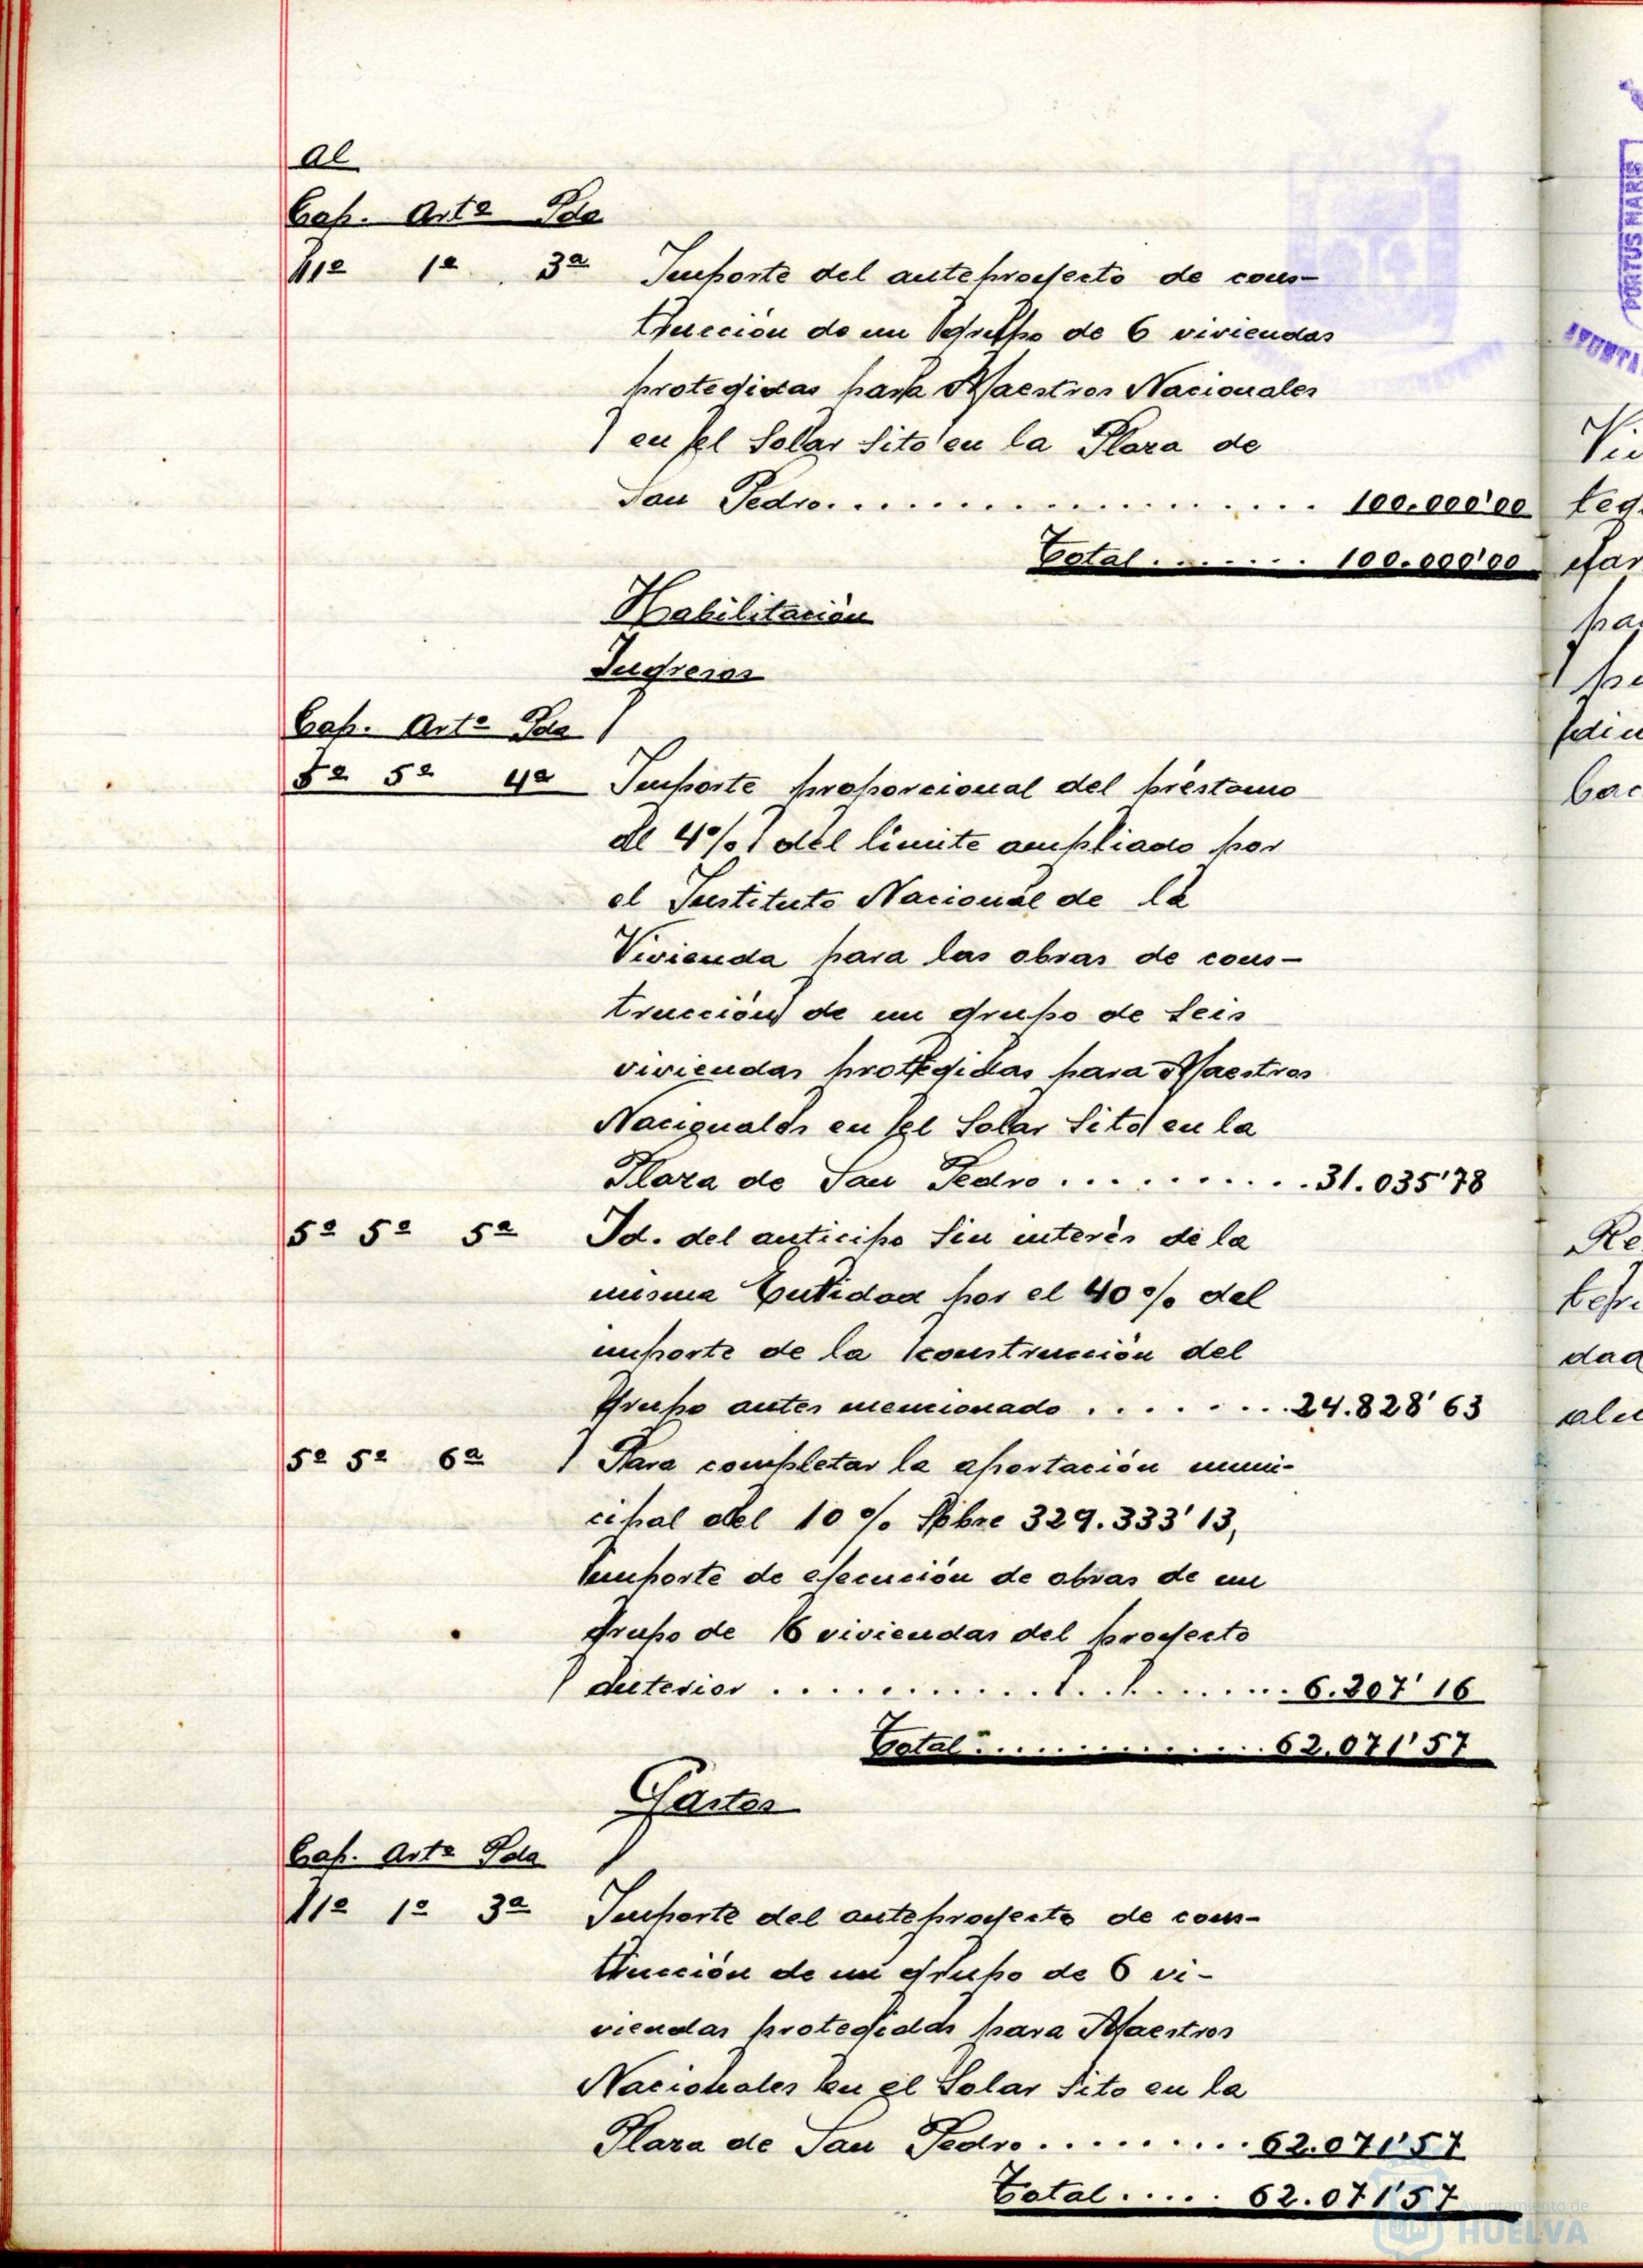 Al
Cap. Artº Pda
11º 1º 3ª Importe del anteproyecto de cons-
trucción de un Grupo de 6 viviendas
protegidas para Maestros Nacionales
en el Solar Sito en la Plaza de
San Pedro. . . . . . . . . . . . . . . . . . . 100.000'00
Total. . . . . . . 100.000'00
Habilitación
Ingresos
Cap. Artº Pda
5º 5º 4ª Importe proporcional del préstamo
al 4% del límite ampliado por
el Instituto Nacional de la
Vivienda para las obras de cons-
trucción de un grupo de seis
viviendas protegidas para Maestros
Nacionales en el Solar Sito en la
Plaza de San Pedro . . . . . . . . . . 31.035'78
5º 5º 5ª Id. del anticipo sin interés de la
misma Entidad por el 40% del
importe de la construcción del
Grupo antes mencionado . . . . . . . . 24.828'63
5º 5º 6ª Para completar la aportación muni-
cipal del 10% Sobre 329.333'13,
importe de ejecución de obras de un
grupo de 6 viviendas del proyecto
anterior . . . . . . . . . . . . . . . . . . . 6.207'16
Total . . . . . . . . . . . . . 62.071'57
Gastos
Cap. Artº Pda
11º 1º 3ª Importe del anteproyecto de cons-
trucción de un grupo de 6 vi-
viendas protegidas para Maestros
Nacionales en el Solar Sito en la
Plaza de San Pedro. . . . . . . . . 62.071'57
Total . . . . . 62.071'57
PORTUS MARIS
Ayuntamiento de
HUELVA